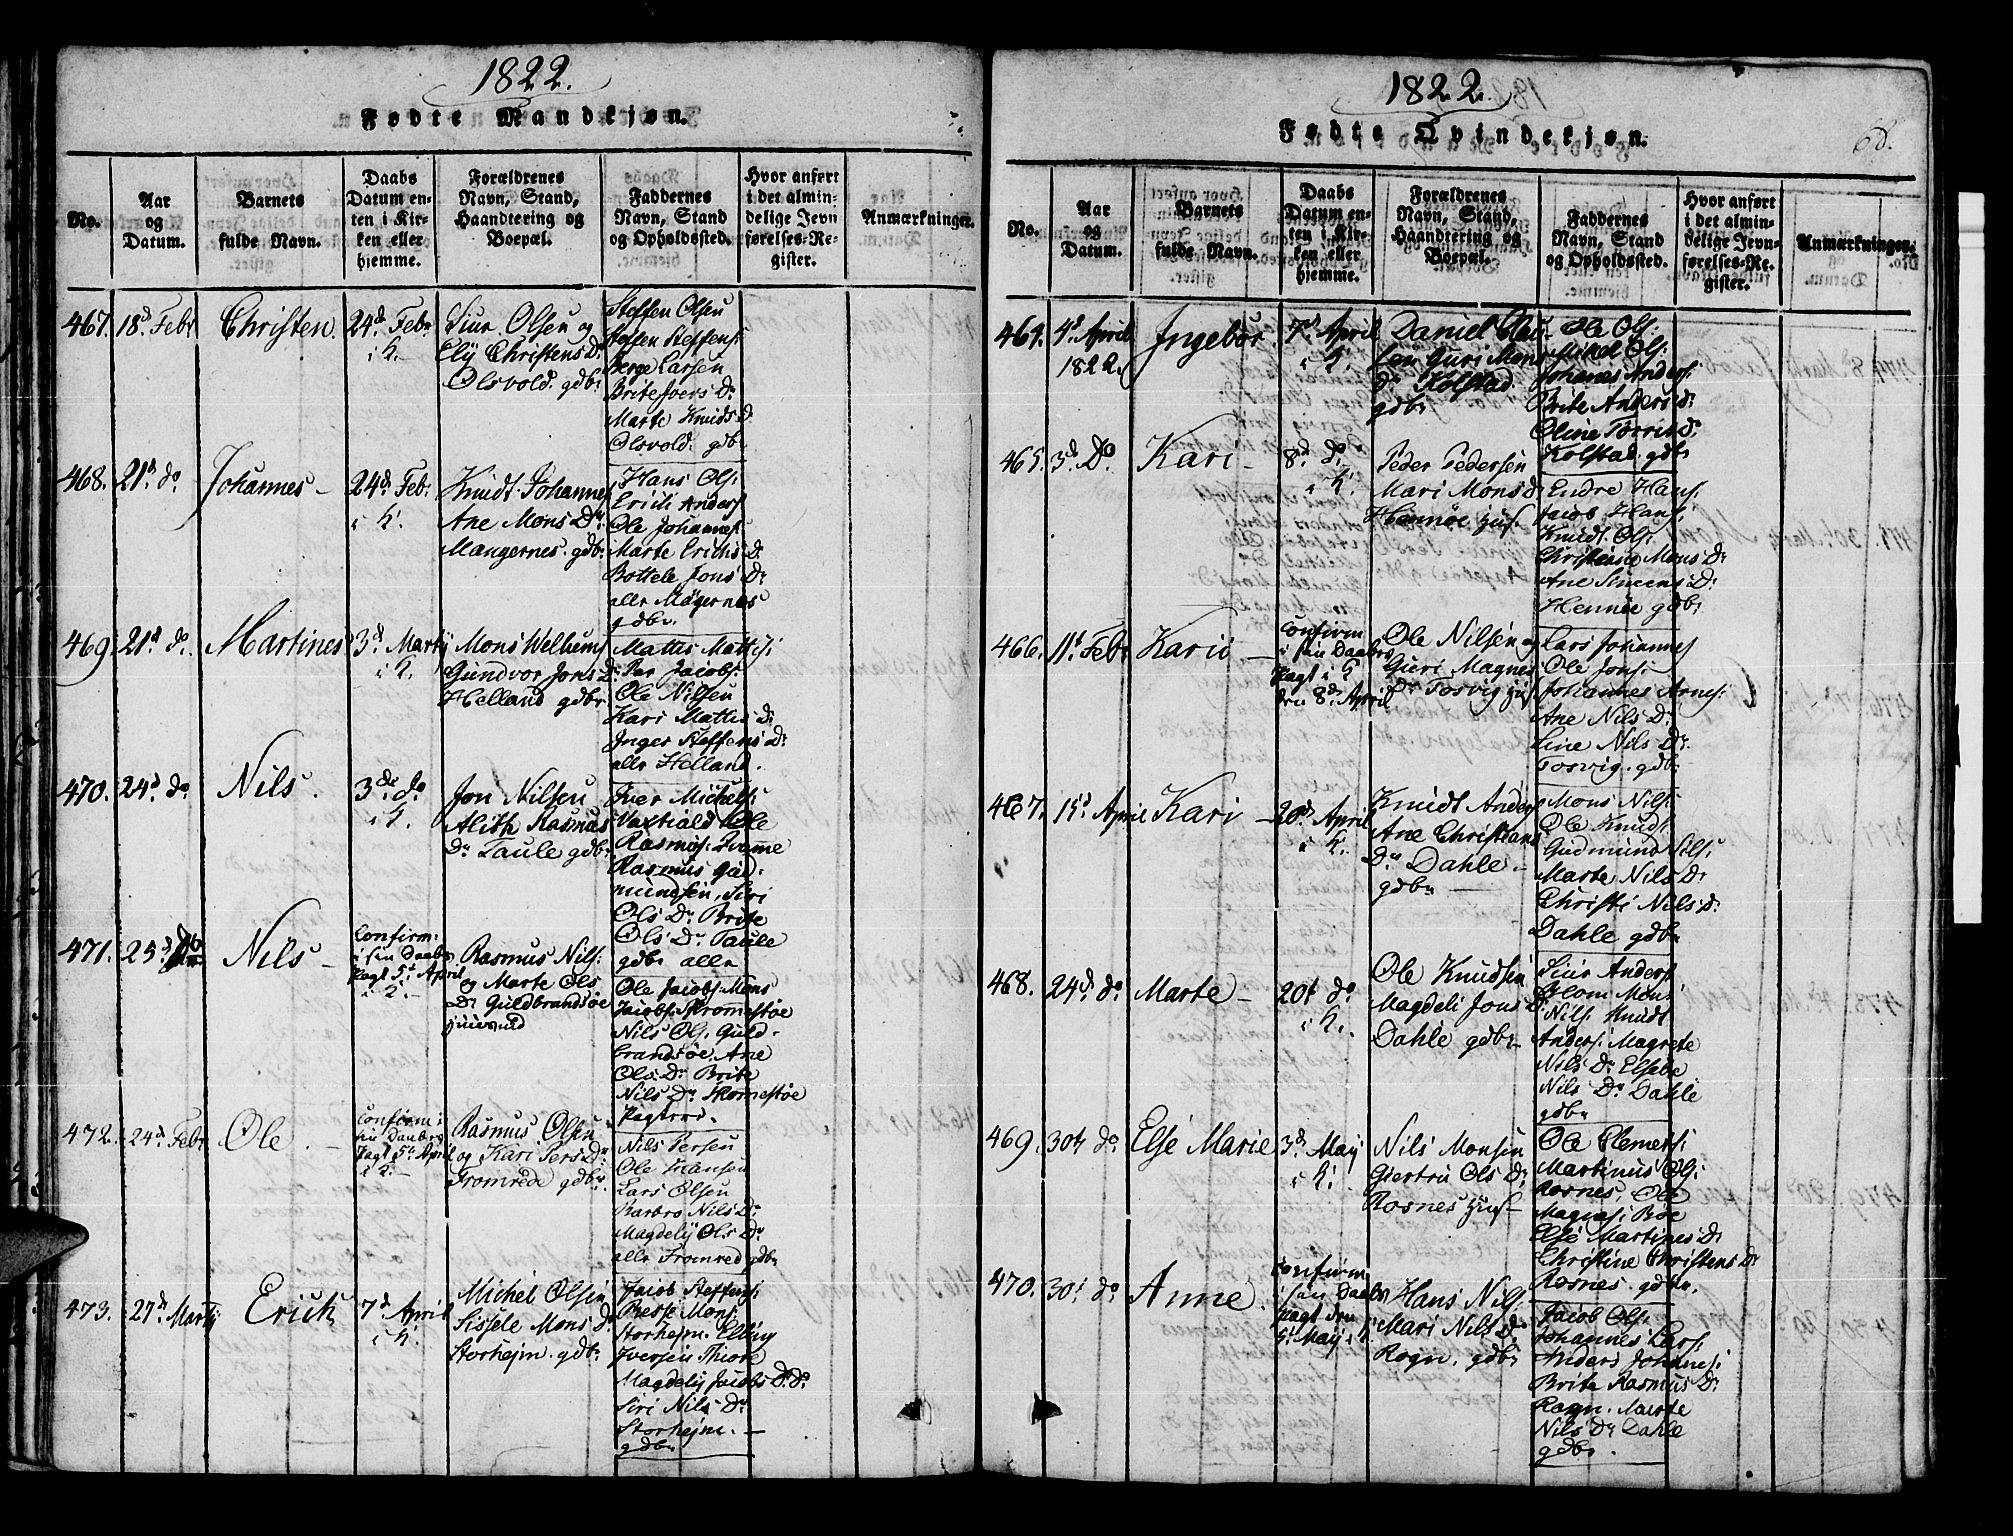 1822.
Fødte Mandkjøn.
No.
Aar
og
Datum.
Barnets
fulde Navn.
Daabs
Datum en-
ten i Kir-
ken eller
hjemme.
Forældrenes
Navn, Stand,
Haandtering og
Boepæl.
Faddernes
Navn, Stand
og Opholdssted.
Hvor anført
i det almin-
delige Jevn
førelses-Re-
gister.
Anmærkninger.
467. 18d Febr
Christen
24d Febr
i K.
Siur Olsen og
Eliij Christens Dr
Olsvold. gdbr
Steffen Olsen
Steffen Steffens:
Berge Larsen
Brite Ivers Dr
Marte Knuds D
Olsvold. gdbr
468. 21d do
Johannes
24d Feb:
i K.
Knudt Johannes
Ane Mons Dr
Mangernes. gdbr
Hans Ols:
Erich Anders
Ole Johannes:
Marte Erichs D
Bottele Jons Dr
alle Mågernes
gdbr.
469. 21d do
Martines
3d Martij
i K.
Mons Welhems
Gundvor Jons D
Helland gdbr
Mattis Mattis:
Per Jacobs:
Ole Nilsen
Kari Mattis D
Inger Steffens Dr
alle Helland.
470. 24d do
Nils
3de do
i K.
Jon Nilsen
Alith Rasmus
Dr Taule gdbr
Iver Michels:
Ole
Rasmus:
Rasmus Gud-
mundsen, Siri
Ols Dr Brite
Ols Dr Taule
gdbr alle
471. 25d
Nils
Confirm:
i sin Daabs
Pagt 5t April
i K.
Rasmus Nils:
og Marte Ols
Dr Guldbrandsøe
Ole Jacobs: Mons
Jacobs:
Nils Ols: Guld-
brandsøe, Ane
Ols Dr Brite
Nils Dr
472. 24d Febr
Ole
Confirm:
i sin Daabs
Pagt 5t April
i K.
Rasmus Olsen
og Kari Pers Dr
Fromrede gdbr
Nils Persen
Ole Hansen
Lars Olsen
Barbro Nils Dr
Magdelij Ols Dr
alle Fromred gdbr
473. 27de Martij
Erich
7d April
i K.
Michel Olsen
Sissele Mons D
Storhejm. gdbr
Jacob Steffens:
Besse Mons:
Storhejm. Elling
Iversen Thiore
Magdelij Jacobs D. Do
Siri Nils Dr
Storhejm.
gdbr
1822.
Fødte Qvindekjøn.
68.
No.
Aar
og
Datum.
Barnets
fulde Navn.
Daabs
Datum en-
ten i Kir-
ken eller
hjemme.
Forældrenes
Navn, Stand,
Haandtering og
Boepæl.
Faddernes
Navn, Stand
og Opholdssted.
Hvor anført
i det almin-
delige Jevn-
førelses-Re-
gister.
Anmærkninger.
4d April
1822.
Ingebor
7d April
i K.
Daniel
Guri Mons
Dr Kolstad.
gdbr
Ole Ols:
Mikel Ols:
Johanes Anders:
Brite Anders Dr
Oline
Kolstad. gdbr
465. 3d Do
Kari
8d do
i K.
Peder Pedersen
Mari Mons D
Hennøe Huf.
Endre Hans:
Jacob Hans:
Knudt Ols:
Christiane Mons Dr
Ane Simens Dr
Hennøe gdbr
466. 11t Febr
Karii
Confirm
i sin Daabs
Pagt i K
den 8d April
Ole Nilsen og
Gieri Magnes
Dr Tosvig Huf.
Lars Johannes
Ole Jons:
Johannes Arnes:
Ane Nils Dr
Line Nils Dr
Tosvig. gdbr
467. 15d April
Kari
20d April
i K.
Knudt Anders
Ane Christians
Dr Dahle
gdbr
Mons Nils:
Ole Knuds:
Gudmund Nils:
Marte Nils Dr
Christi Nils Dr
Dahle gdbr
468. 24d do
Marte
20t do
i K.
Ole Knudsen
Magdeli Jons D
Dahle gdbr
Siur Anders
Blom Mons
Nils: Knudt
Anders: Magrete
Nils Dr Elsebe
Nils Dr Dahle
gdbr
469. 30te do
Else Marie
3d Maij
i K.
Nils Monsen
Giertru Ols Dr
Rosnes Huf
Ole Clemets:
Martinus Ols:
Rosnes, Ole
Magnes: Bøe
Else Martines Dr
Christine Christens Dr
Rosnes. gdbr.
470. 30t do
Anne
Confirm
i sin Daabs
Pagt den
5t Maij i K
Hans Nils:
Mari Nils Dr
Rogn. gdbr
Jacob Ols:
Johannes Lars:
Anders Johanes:
Brite Rasmus Dr
Rogn. Marte
Nils Dr Dahle
gdbr.